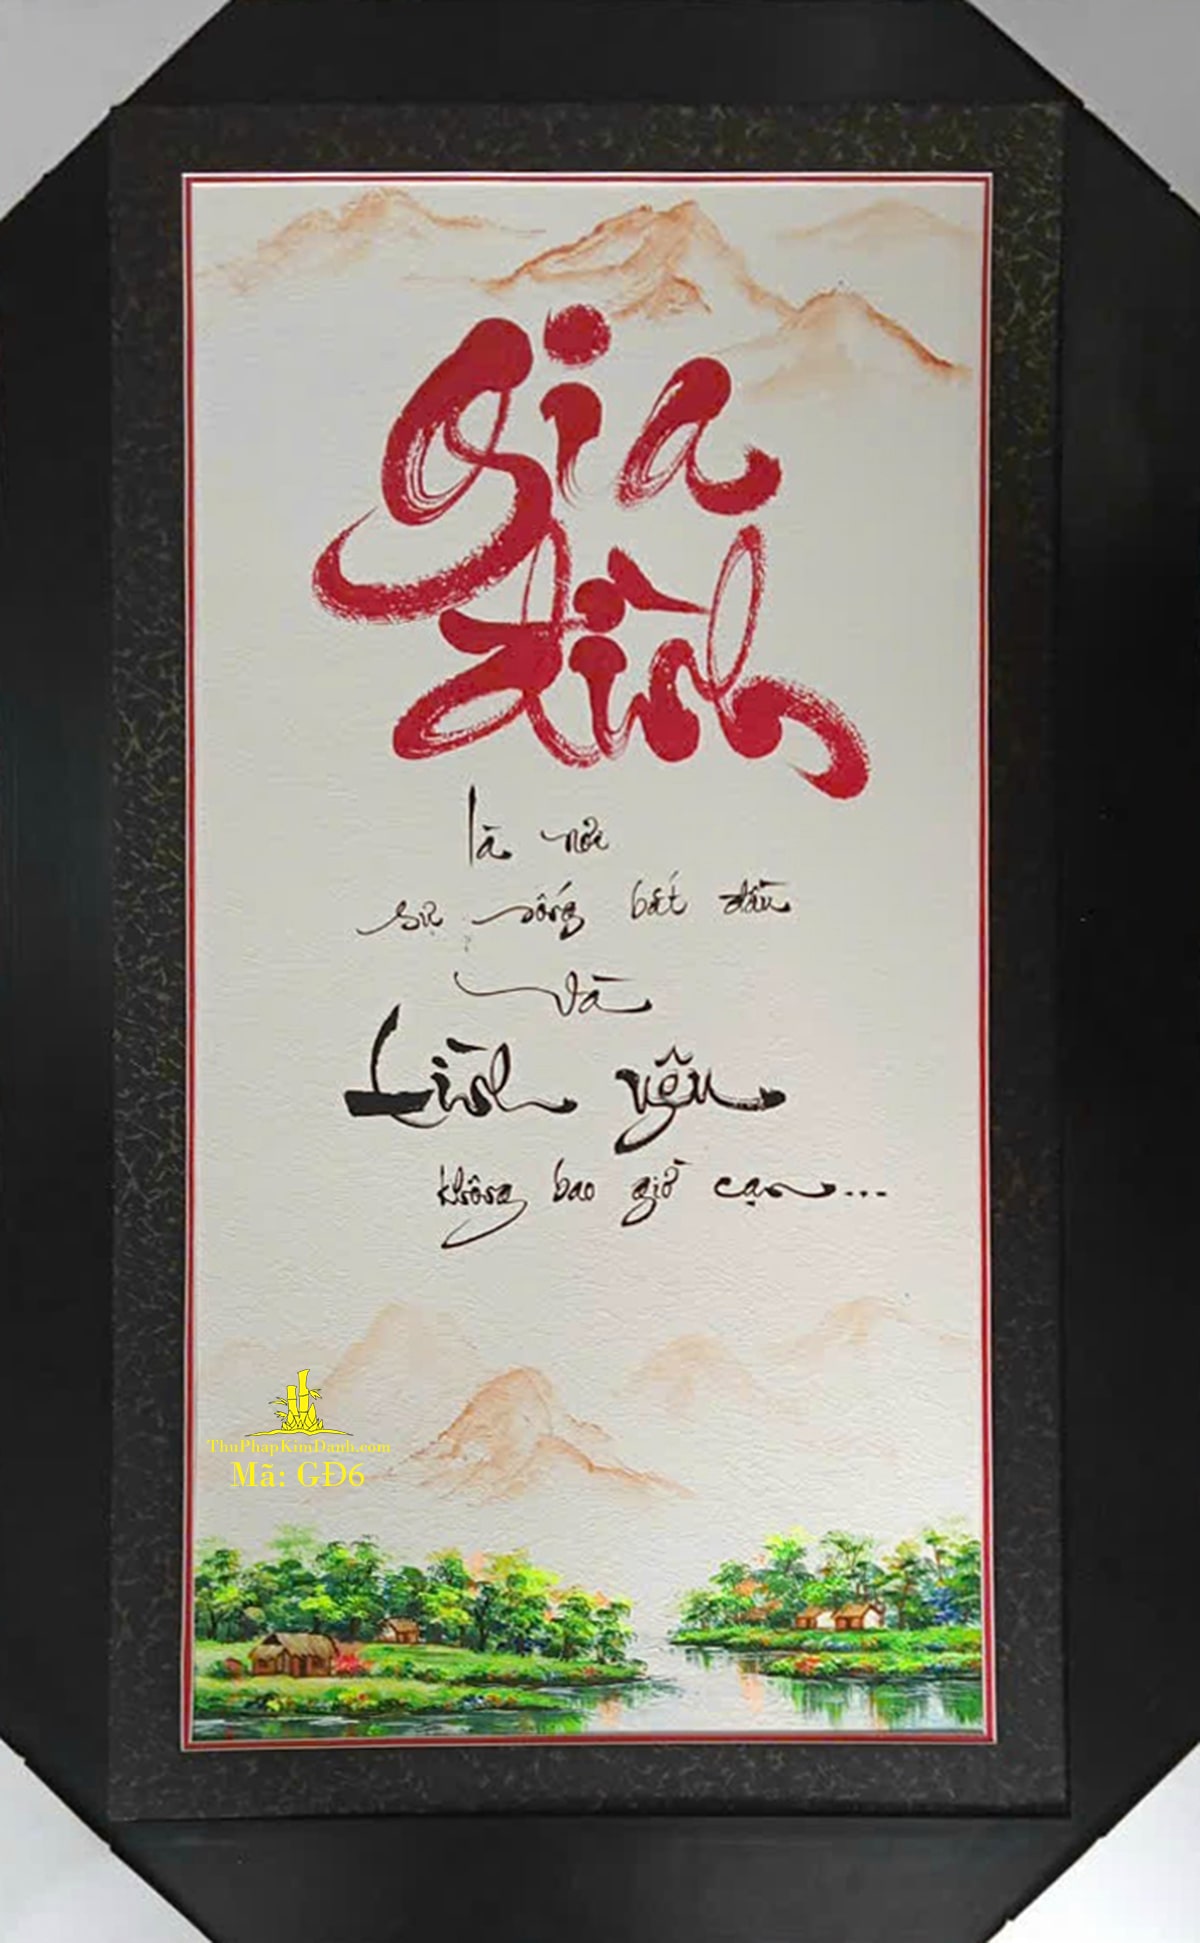 Gia
đình
là nơi
sự sống bắt đầu
và
Tình yêu
không bao giờ cạn...
ThuPhapKimDanh.com
Mã: GĐ6